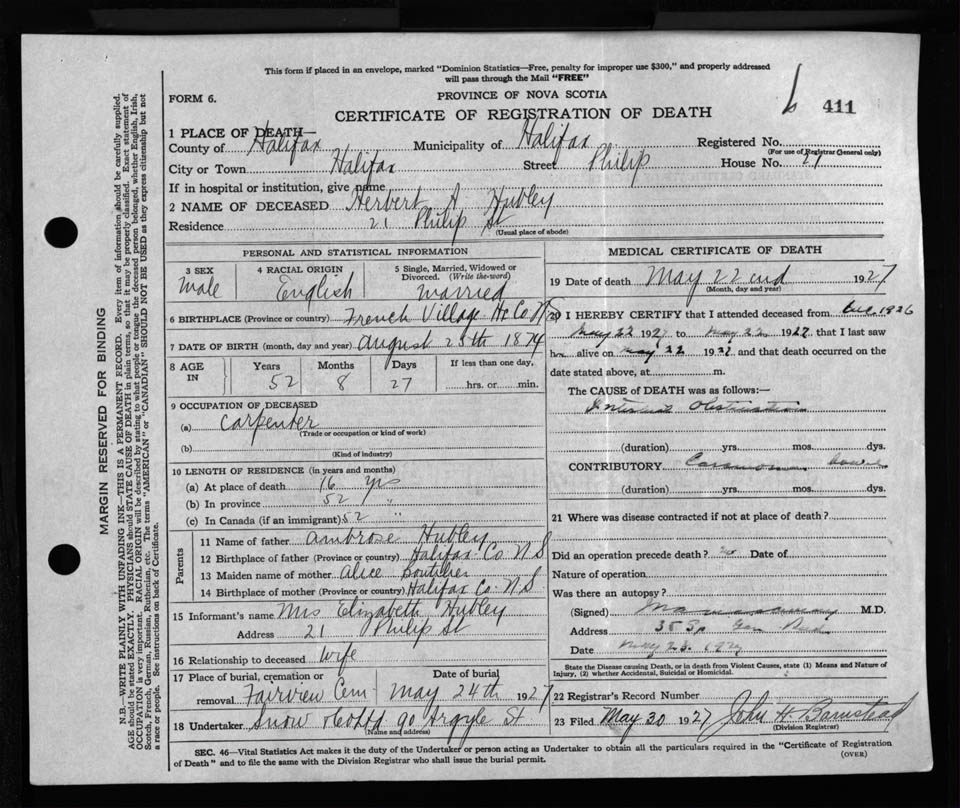 This form if placed in an envelope, marked "Dominion Statistics—Free, penalty for improper use $300," and properly addressed
will pass through the Mail "FREE"
FORM 6.
PROVINCE OF NOVA SCOTIA
411
CERTIFICATE OF REGISTRATION OF DEATH
1 PLACE OF DEATH—
County of Halifax Municipality of Halifax Registered No.
(For use of Registrar General only)
City or Town Halifax Street Philip House No. 21
If in hospital or institution, give name
2 NAME OF DECEASED Herbert A Hubley
Residence 21 Philip St
(Usual place of abode)
PERSONAL AND STATISTICAL INFORMATION
3 SEX
Male
4 RACIAL ORIGIN
English
5 Single, Married, Widowed or
Divorced. (Write the word)
married
6 BIRTHPLACE (Province or country) French Village Hx Co N
7 DATE OF BIRTH (month, day and year) August 25th 1874
8 AGE IN
Years 52
Months 8
Days 27
If less than one day,
hrs. or min.
9 OCCUPATION OF DECEASED
(a) Carpenter
(Trade or occupation or kind of work)
(b)
(Kind of industry)
10 LENGTH OF RESIDENCE (in years and months)
(a) At place of death 16 yrs
(b) In province 52 "
(c) In Canada (if an immigrant) 52 "
Parents
11 Name of father Ambrose Hubley
12 Birthplace of father (Province or country) Halifax Co. N S
13 Maiden name of mother Alice Boutilier
14 Birthplace of mother (Province or country) Halifax Co. N.S
15 Informant's name Mrs Elizabeth Hubley
Address 21 Philip St
16 Relationship to deceased wife
17 Place of burial, cremation or removal Fairview Cem
Date of burial May 24th 1927
18 Undertaker Snow & Co Ltd 90 Argyle St
(Name and address)
MEDICAL CERTIFICATE OF DEATH
19 Date of death May 22cnd 1927
(Month, day and year)
20 I HEREBY CERTIFY that I attended deceased from 1926
May 22 1927 to May 22 1927, that I last saw
h alive on May 22 1927, and that death occurred on the
date stated above, at m.
The CAUSE of DEATH was as follows:—
Intestinal Obstruction
(duration) yrs. mos. dys.
CONTRIBUTORY Carcinoma bowel
(duration) yrs. mos. dys.
21 Where was disease contracted if not at place of death?
Did an operation precede death? no Date of
Nature of operation
Was there an autopsy?
(Signed) M.D.
Address 35 Sp Gar Road
Date May 23. 1927
State the Disease causing Death, or in death from Violent Causes, state (1) Means and Nature of
Injury, (2) whether Accidental, Suicidal or Homicidal.
22 Registrar's Record Number
23 Filed May 30 1927 John H
(Division Registrar)
SEC. 46—Vital Statistics Act makes it the duty of the Undertaker or person acting as Undertaker to obtain all the particulars required in the "Certificate of Registration
of Death" and to file the same with the Division Registrar who shall issue the burial permit.
(OVER)
MARGIN RESERVED FOR BINDING
N.B.—WRITE PLAINLY WITH UNFADING INK—THIS IS A PERMANENT RECORD. Every item of information should be carefully supplied.
AGE should be stated EXACTLY. PHYSICIANS should STATE CAUSE OF DEATH in plain terms, so that it may be properly classified. Exact statement of
OCCUPATION is very important. RACIAL ORIGIN will be described by stating to what people or tongue the deceased person belonged, whether English, Irish,
Scotch, French, German, Russian, Ruthenian, etc. The terms "AMERICAN" or "CANADIAN" SHOULD NOT BE USED as they express citizenship but not
a race or people. See instructions on back of Certificate.